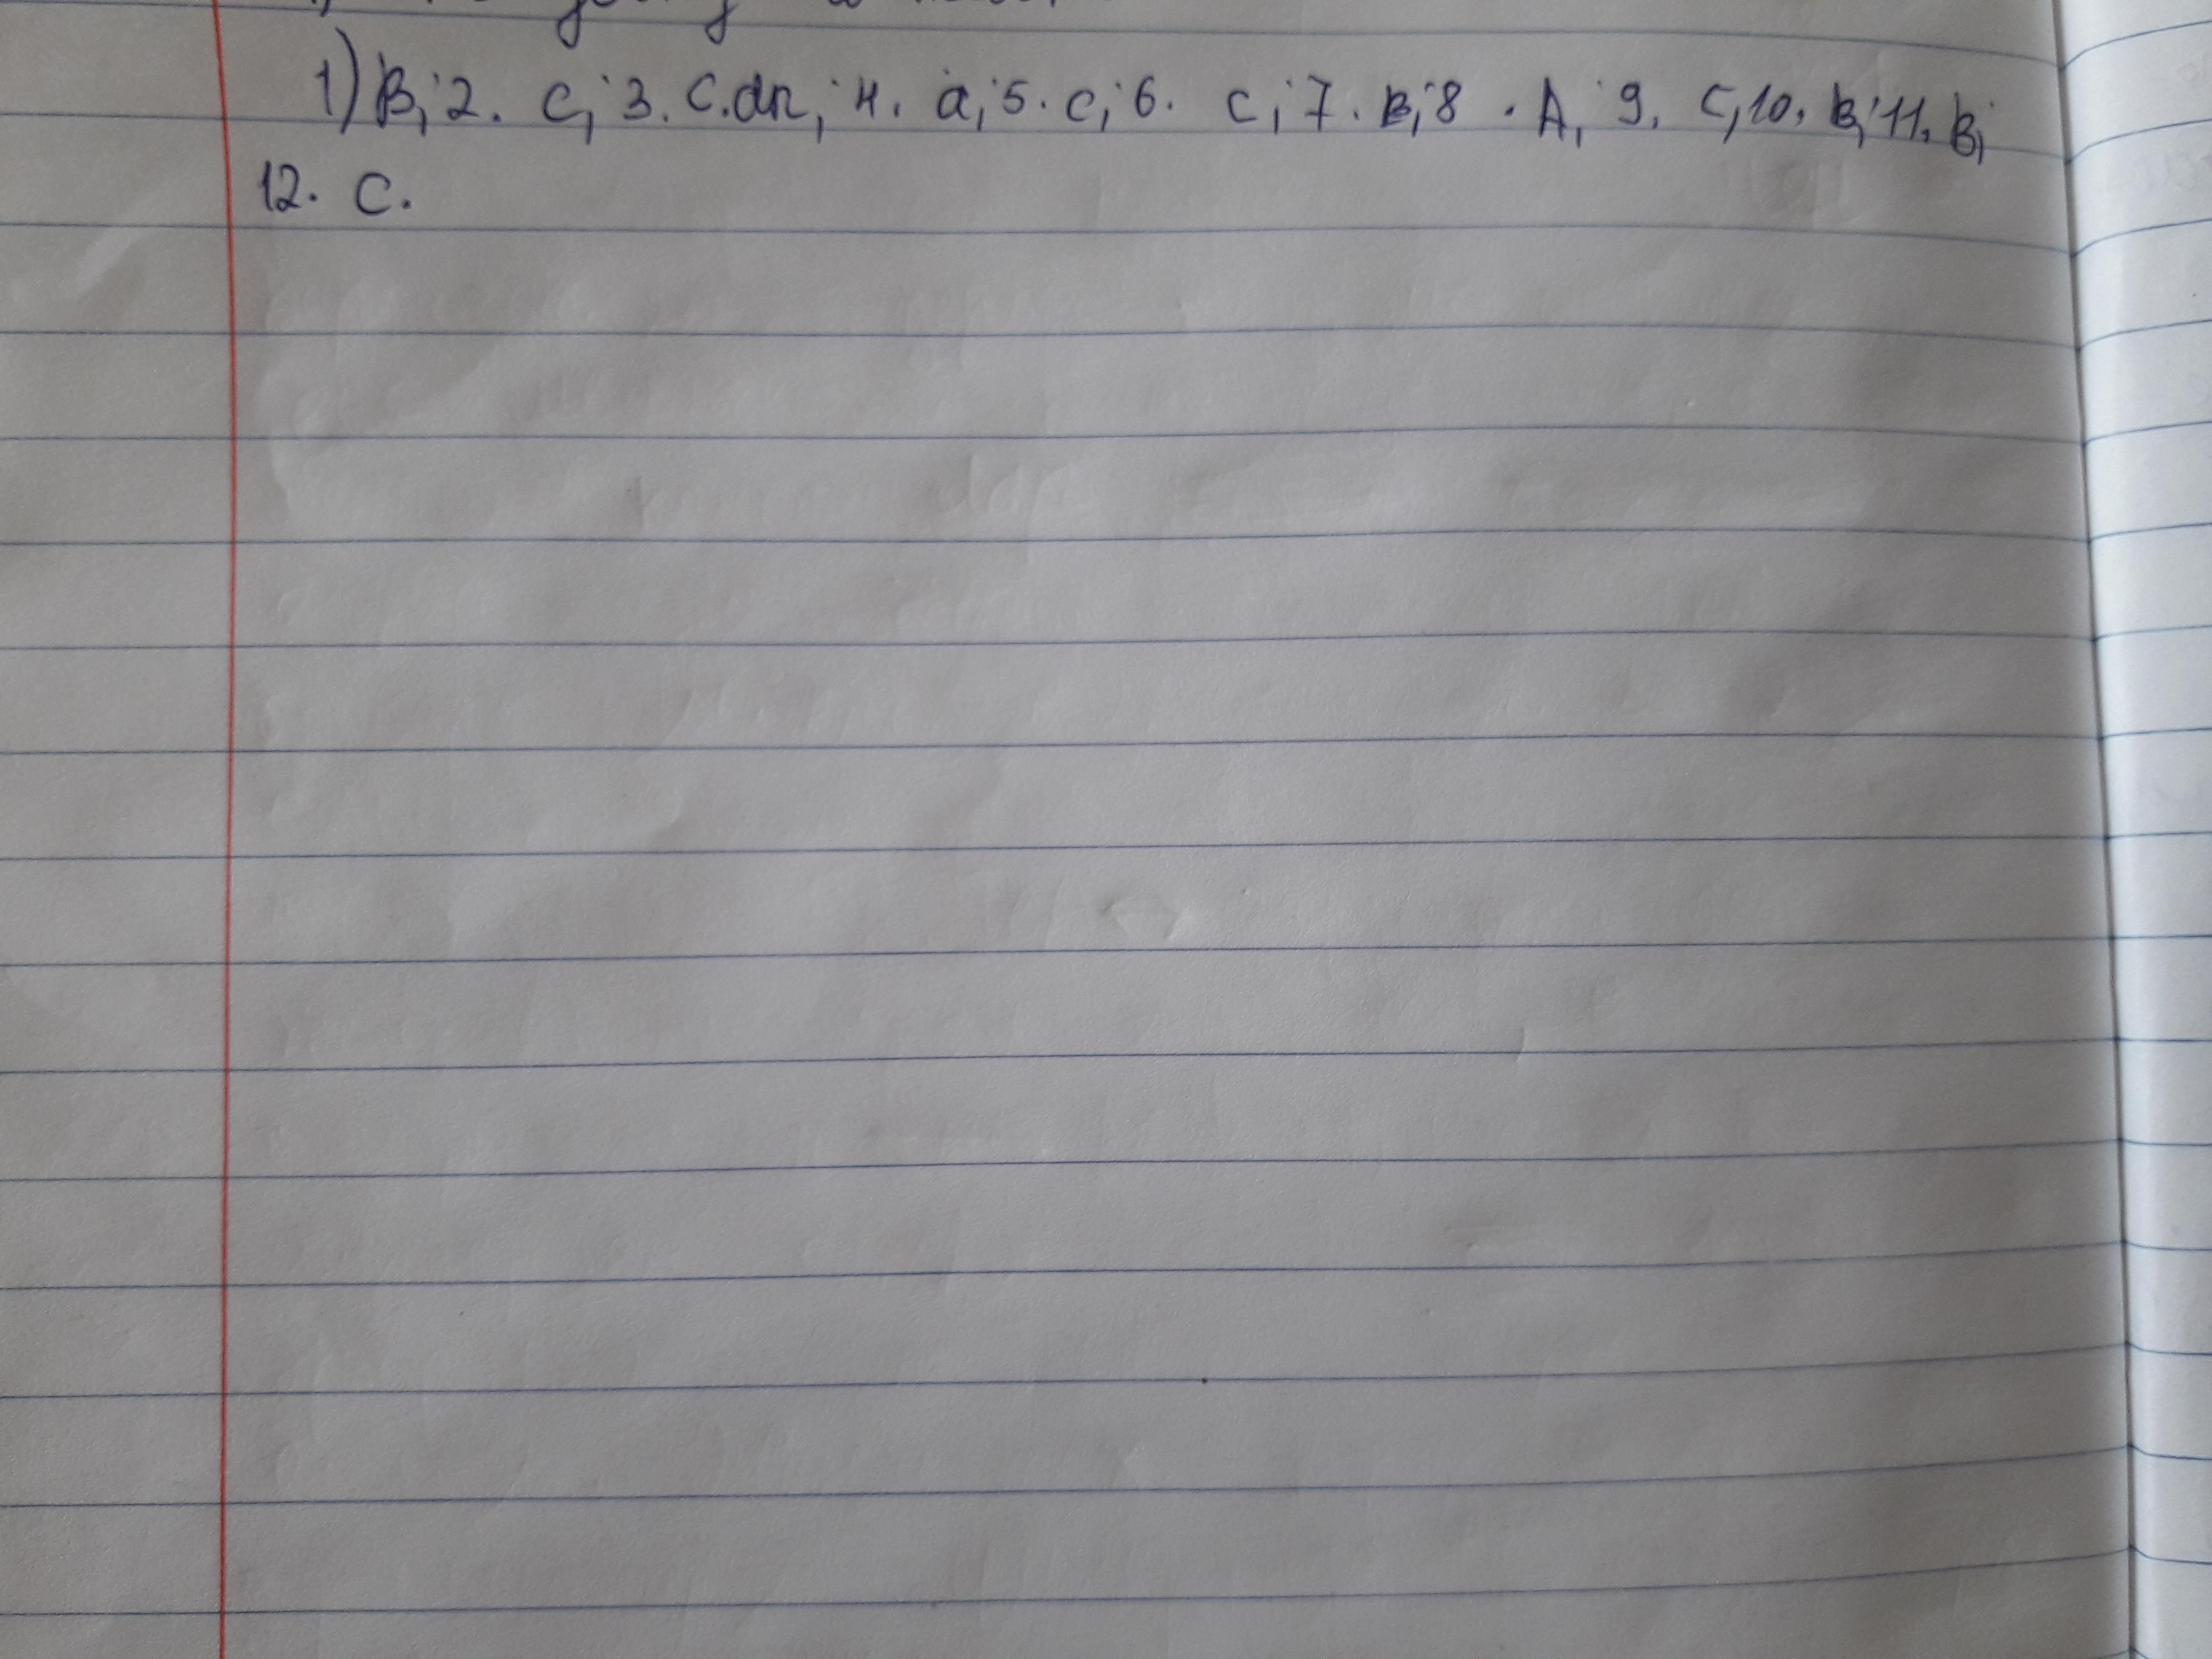 going
1) B; 2. C; 3. C.dn; 4. a; 5. c; 6. c; 7. B; 8. A; 9. C; 10. B; 11. B;
12. C.